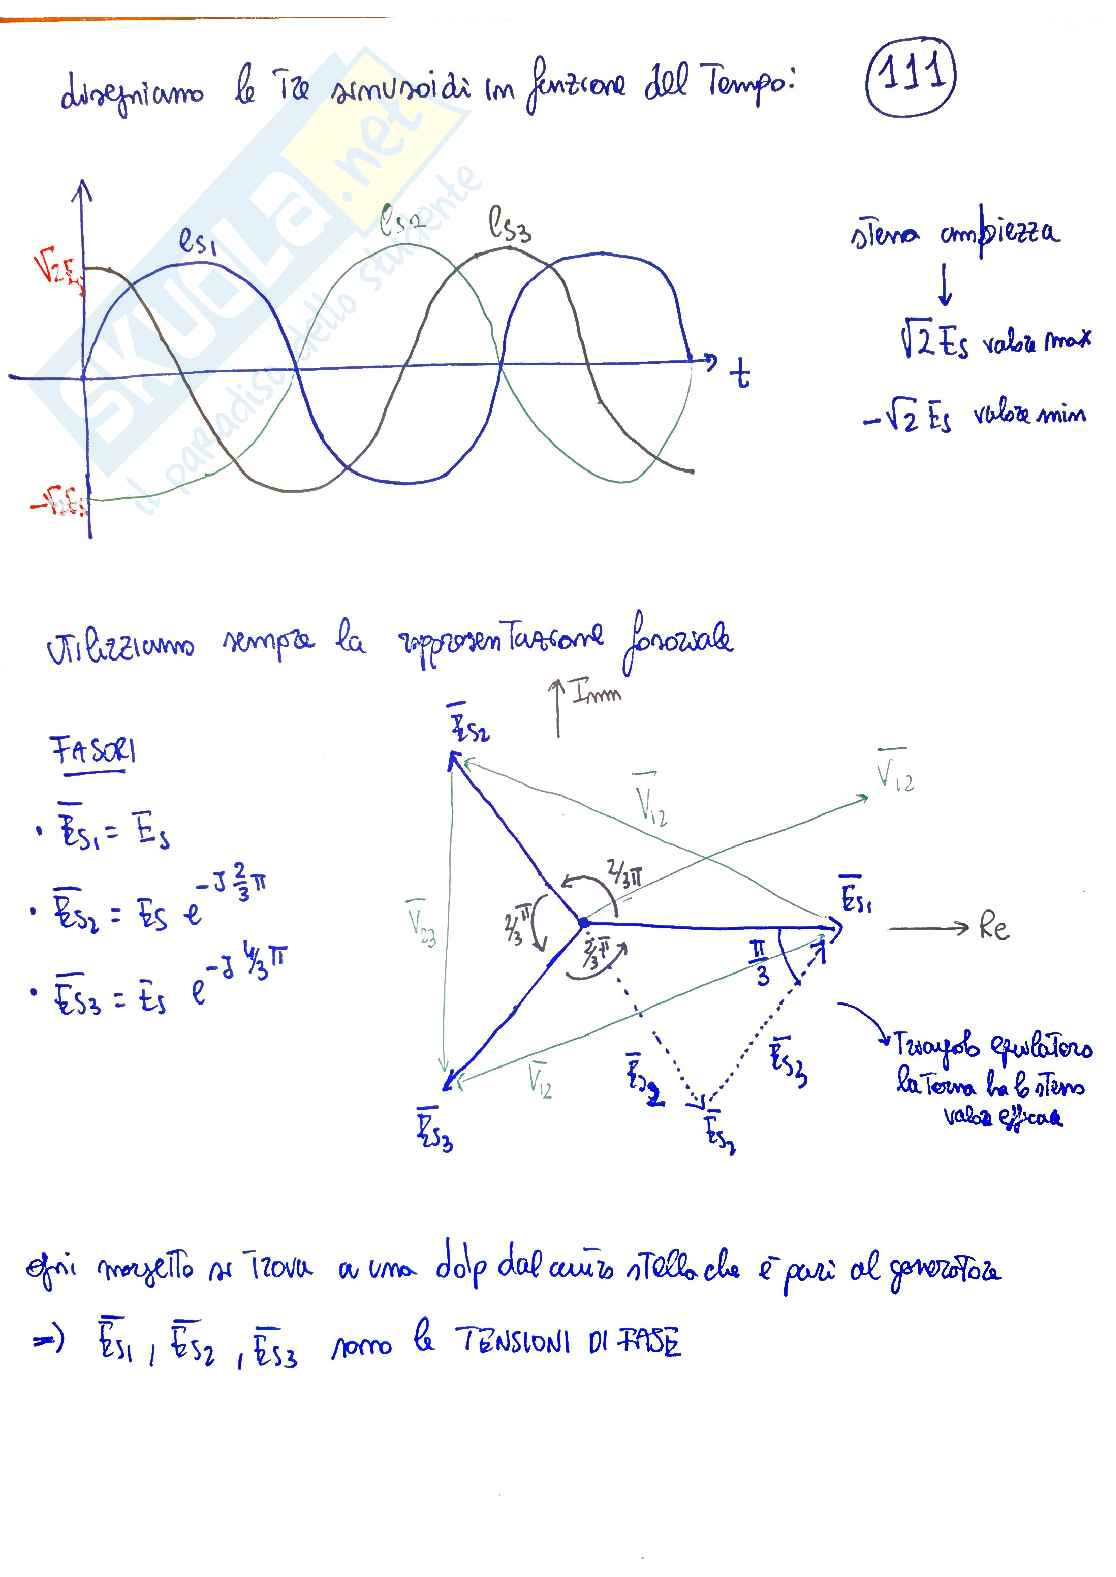 disegniamo le tre sinusoidi in funzione del tempo:
111
SKUOLA.net
il paradiso dello studente
√2Es
es1
es2
es3
t
-√2Es
stessa ampiezza
√2 Es valore max
-√2 Es valore min
utilizziamo sempre la rappresentazione fasoriale
FASORI
• E̅s1 = Es
• E̅s2 = Es e^-J 2/3 π
• E̅s3 = Es e^-J 4/3 π
E̅s2
Imm
V̅12
V̅12
2/3π
E̅s1
V̅23
2/3π
2/3π
π/3
Re
V̅12
E̅s2
E̅s3
E̅s3
E̅s2
Triangolo equilatero
la terna ha lo stesso
valore efficace
ogni morsetto si trova a una ddp dal centro stella che è pari al generatore
=> E̅s1, E̅s2, E̅s3 sono le TENSIONI DI FASE